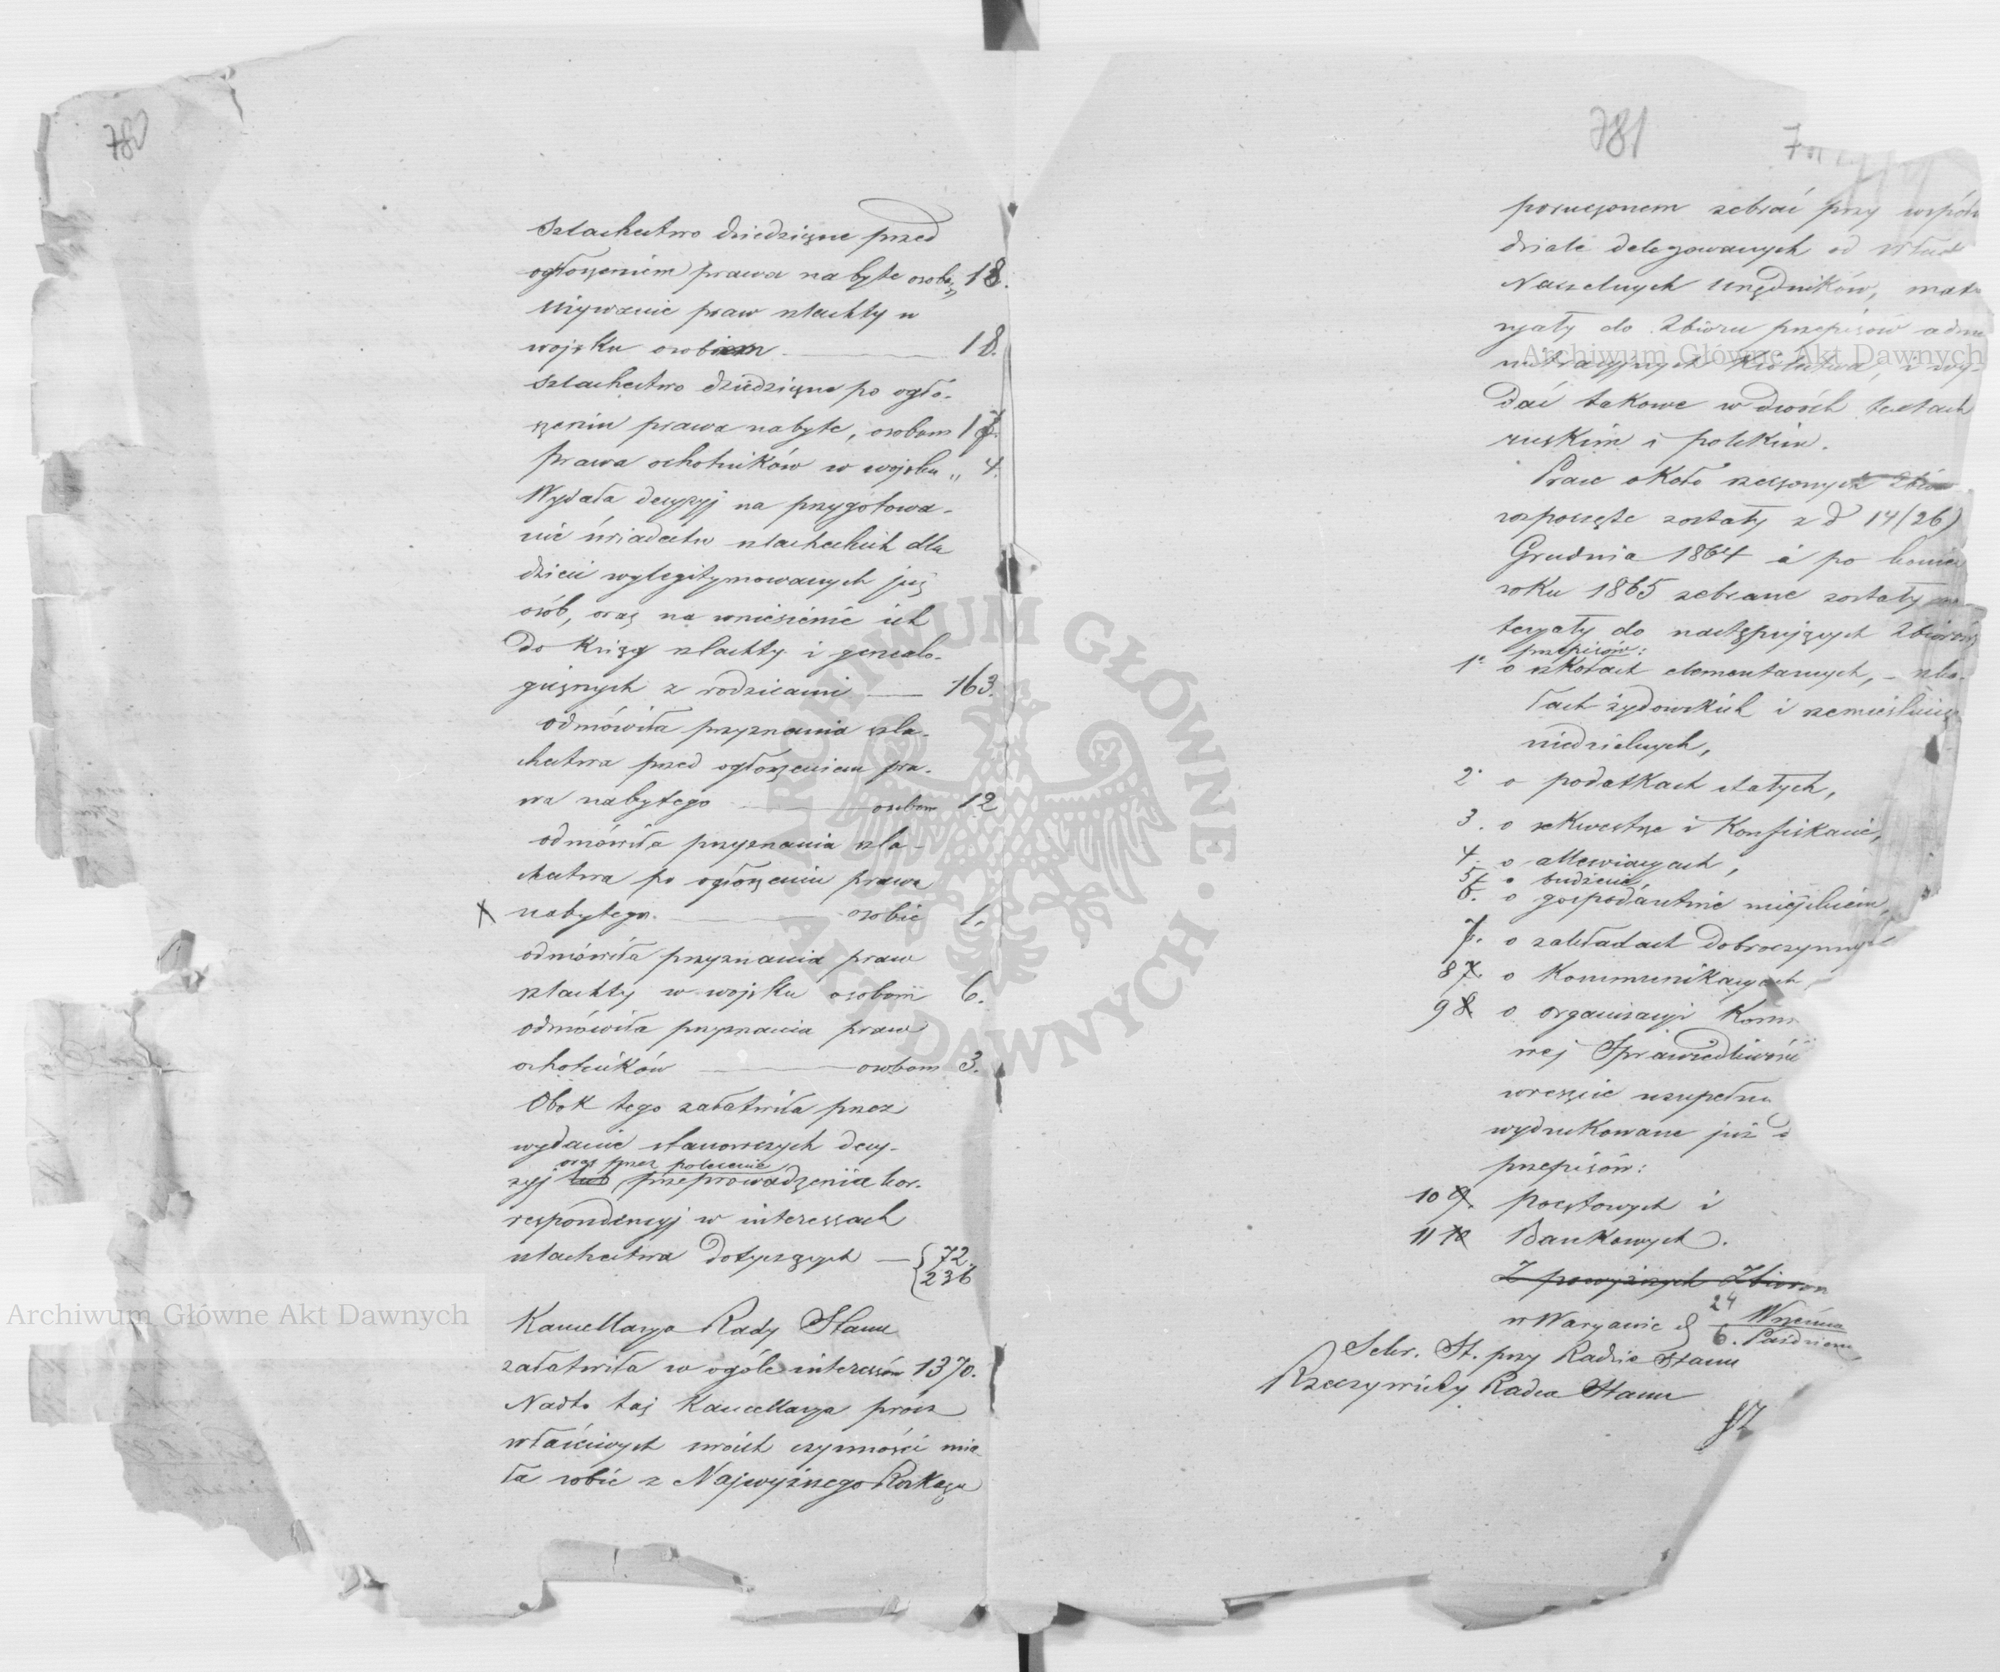 780
szlachectwo dziedziczne przed
ogłoszeniem prawa nabyte osobom 18.
używanie praw szlachty w
wojsku osobom 18.
szlachectwo dziedziczne po ogło-
szeniu prawa nabyte, osobom 17.
prawa ochotników w wojsku „ 4.
Wydała decyzyj na przygotowa-
nie świadectw szlacheckich dla
dzieci wylegitymowanych już
osób, oraz na wniesienie ich
do Ksiąg szlachty i genealo-
gicznych z rodzicami 163.
odmówiła przyznania szla-
chectwa przed ogłoszeniem pra-
wa nabytego osobom 12
odmówiła przyznania szla-
chectwa po ogłoszeniu prawa
X nabytego. osobie 1.
odmówiła przyznania praw
szlachty w wojsku osobom 6.
odmówiła przyznania praw
ochotników osobom 3.
Obok tego załatwiła przez
wydanie stanowczych decy-
oraz przez polecenie
zyj lub przeprowadzenia kor-
respondencyj w interessach
szlachectwa dotyczących { 72.
236
Kancellarya Rady Stanu
załatwiła w ogóle interessów 1370.
Nadto taż Kancellarya prócz
właściwych swoich czynności mia-
ła sobie z Najwyższego Rozkazu
781
poruczonem zebrać przy współu-
dziale delegowanych od Władz
Naczelnych urzędników, mate-
ryały do Zbioru przepisów admi-
nistracyjnych Królestwa, i wy-
dać takowe w dwóch textach
ruskim i polskim.
Prace około rzeczonych Zbio
rozpoczęte zostały z d 14/26)
Grudnia 1864 a po koniec
roku 1865 zebrane zostały ma-
teryały do następujących Zbiorów
przepisów:
1° o szkołach elementarnych, – szko-
łach żydowskich i rzemieślnicz
niedzielnych,
2° o podatkach stałych,
3. o sekwestrze i Konfiskacie,
4. o allewiacyach,
5. o budżecie,
6. o gospodarstwie miejskiem,
7. o zakładach dobroczynnych
8 7. o Kommunikacyach,
9 8 o organizacyi Komm
nej Sprawiedliwości
wreszcie uzupełni
wydrukowane już
przepisów:
10 9. pocztowych i
11 10 Bankowych.
Z powyższych Zbiorów
w Warszawie d 24 Września
6. Paździer
Sekr. St. przy Radzie Stanu
Rzeczywisty Radca Stanu